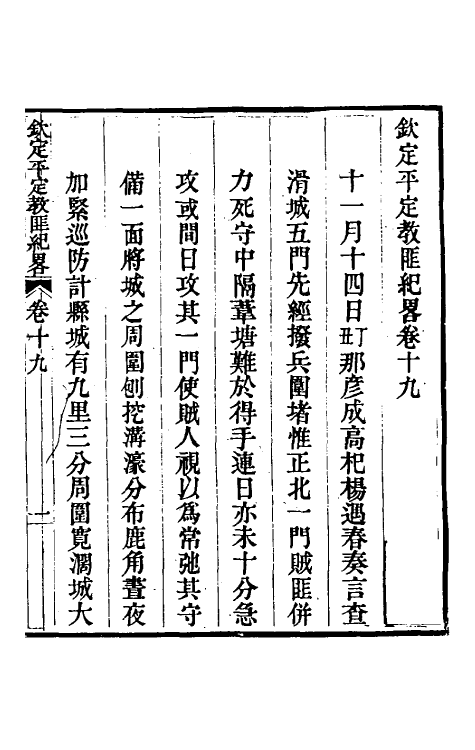 欽定平定教匪紀畧卷十九
十一月十四日丁丑那彦成高杞楊遇春奏言查
滑城五門先經撥兵圍堵惟正北一門賊匪併
力死守中隔葦塘難於得手連日亦未十分急
攻或間日攻其一門使賊人視以爲常弛其守
備一面將城之周圍刨挖溝濠分布鹿角晝夜
加緊巡防計縣城有九里三分周圍寛濶城大
欽定平定教匪紀畧
卷十九
一